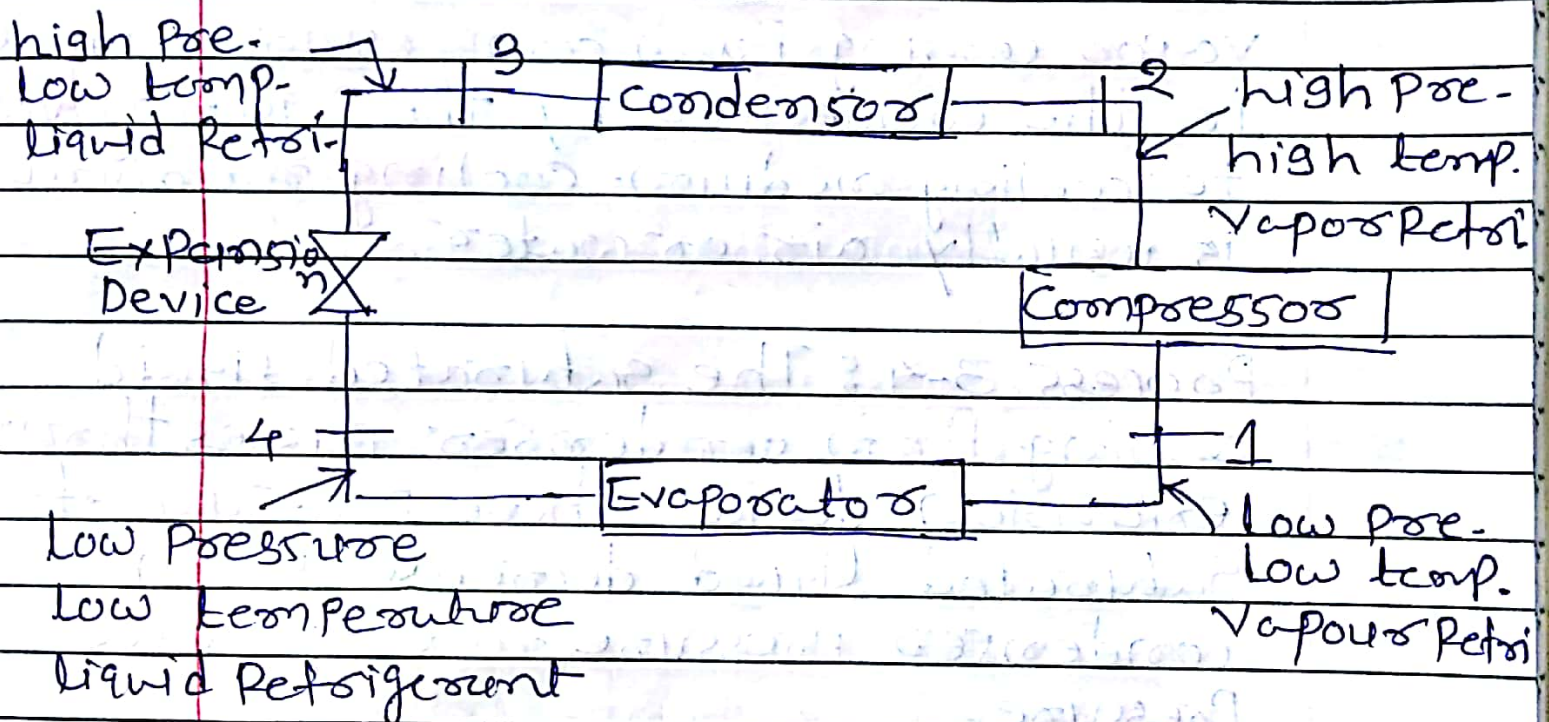 high pre.
Low temp.
liquid Refri.
3
Condensor
2
high pre-
high temp.
Vapor Refri
Expansion
Device
Compressor
4
1
Evaporator
Low Pressure
Low temperature
liquid Refrigerant
low pre.
Low temp.
Vapour Refri